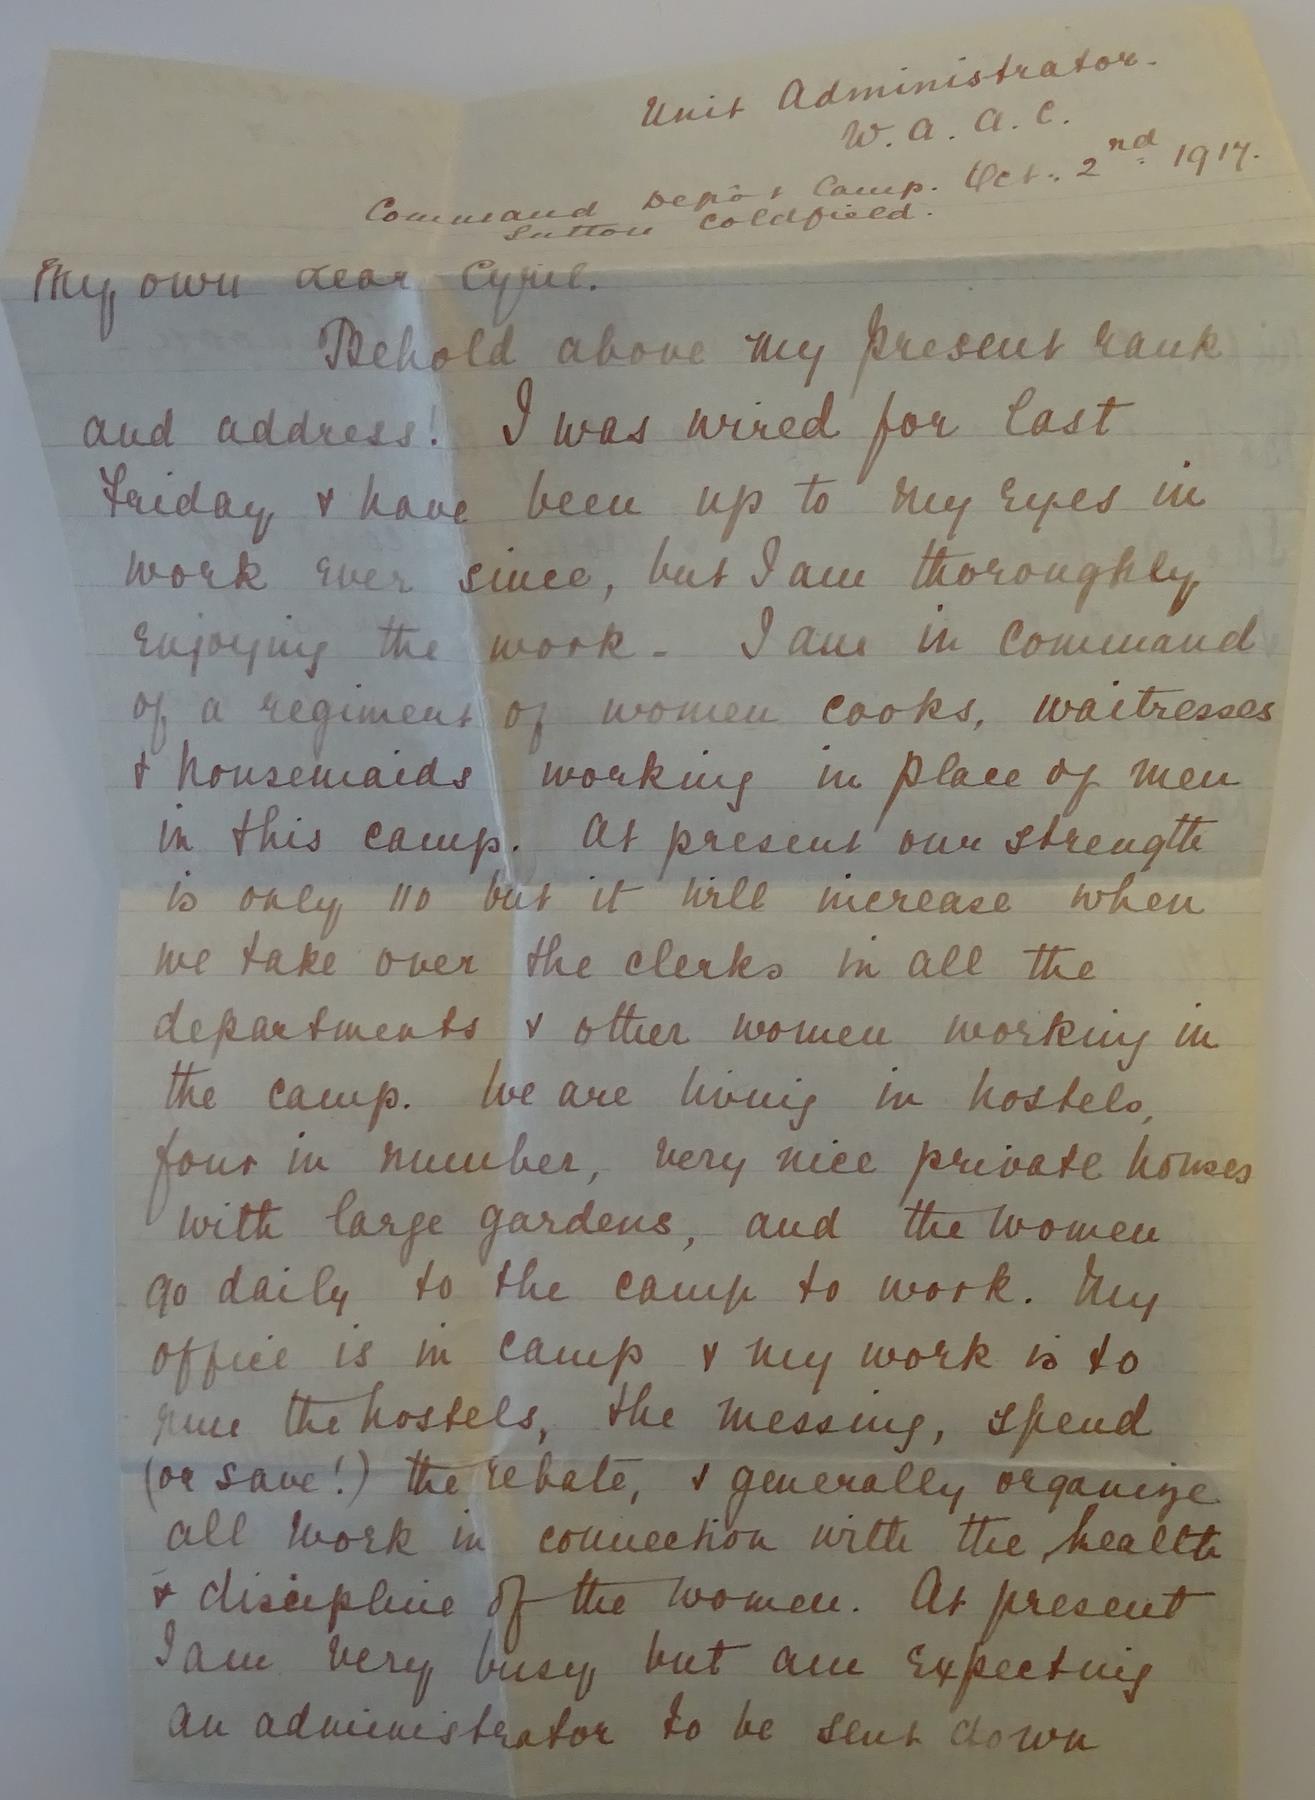 Unit Administrator.
W. A. A. C.
Command Depôt Camp. Oct. 2nd 1917.
Sutton Coldfield.
My own dear Cyril.
Behold above my present rank
and address! I was wired for last
Friday & have been up to my eyes in
work ever since, but I am thoroughly
enjoying the work - I am in command
of a regiment of women cooks, waitresses
& housemaids working in place of men
in this camp. At present our strength
is only 110 but it will increase when
we take over the clerks in all the
departments & other women working in
the camp. We are living in hostels,
four in number, very nice private houses
with large gardens, and the women
go daily to the camp to work. My
office is in camp & my work is to
run the hostels, the messing, spend
(or save!) the rebate, & generally organize
all work in connection with the health
& discipline of the women. At present
I am very busy but am expecting
an administrator to be sent down